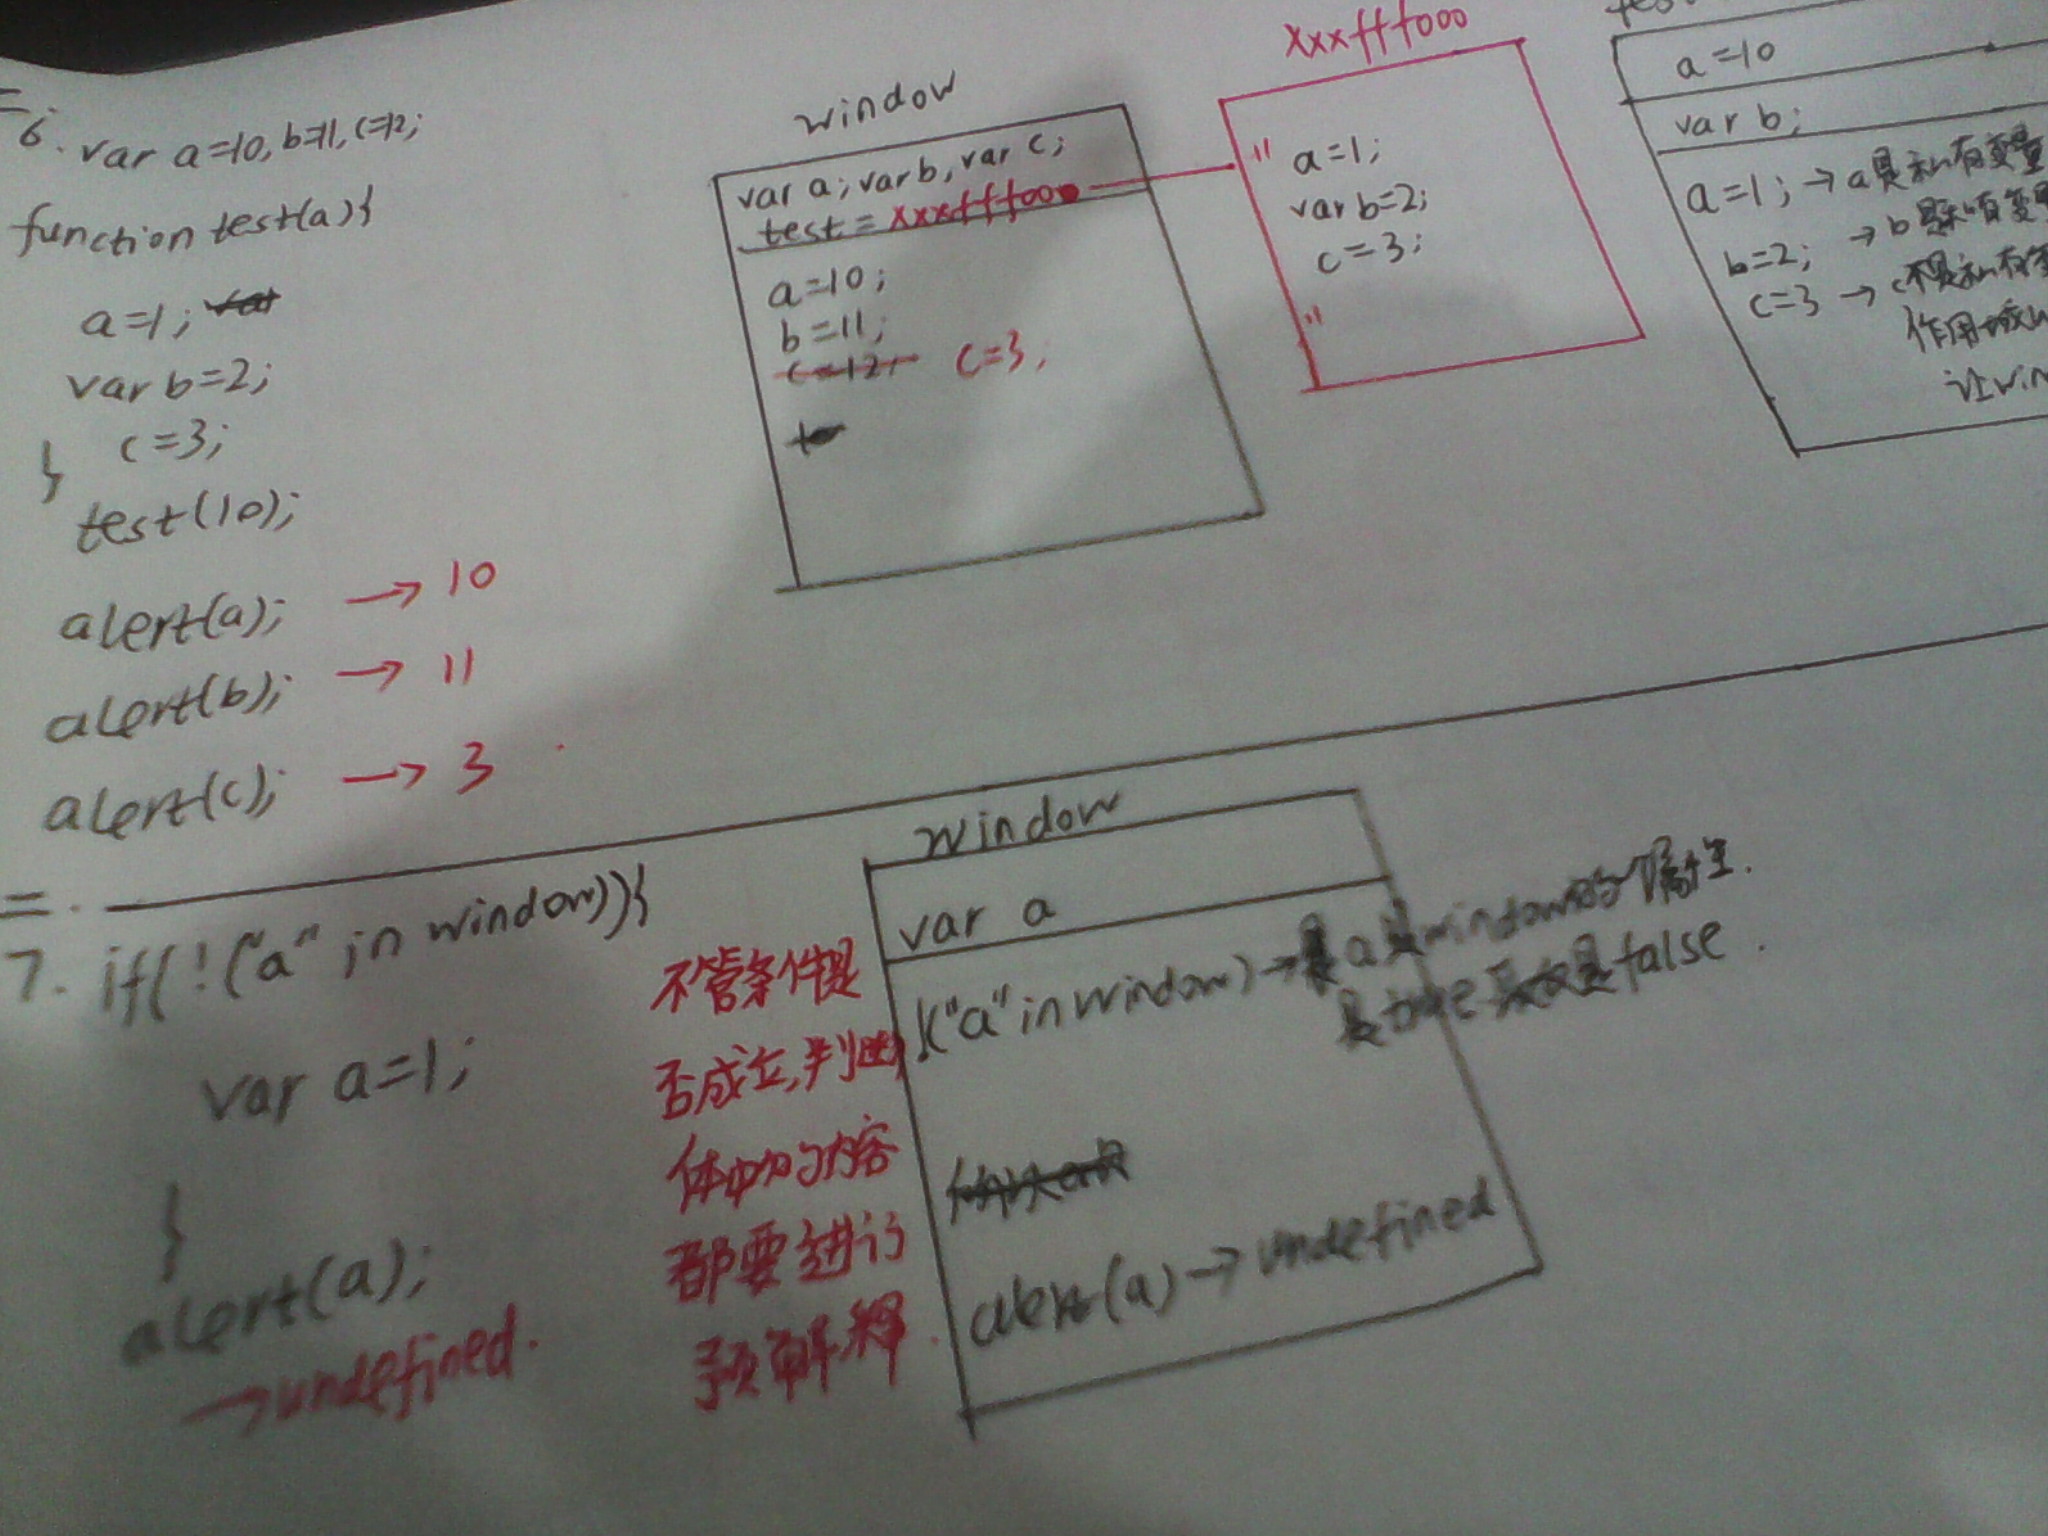 6. var a=10, b=11, c=12;
function test(a){
a=1;
var b=2;
c=3;
}
test(10);
alert(a); → 10
alert(b); → 11
alert(c); → 3
window
var a; var b, var c;
test = xxxfff000
a=10;
b=11;
c=12; c=3;
xxxfff000
"
a=1;
var b=2;
c=3;
"
a=10
var b;
a=1; → a是私有变量
b=2; → b是私有变量
c=3 → c不是私有变
作用域
让win
7. if(!("a" in window)){
var a=1;
}
alert(a);
→undefined.
不管条件是
否成立,判断
体中的内容
都要进行
预解释.
window
var a
!("a" in window) → a是window的属性.
是true 是false.
alert(a) → undefined